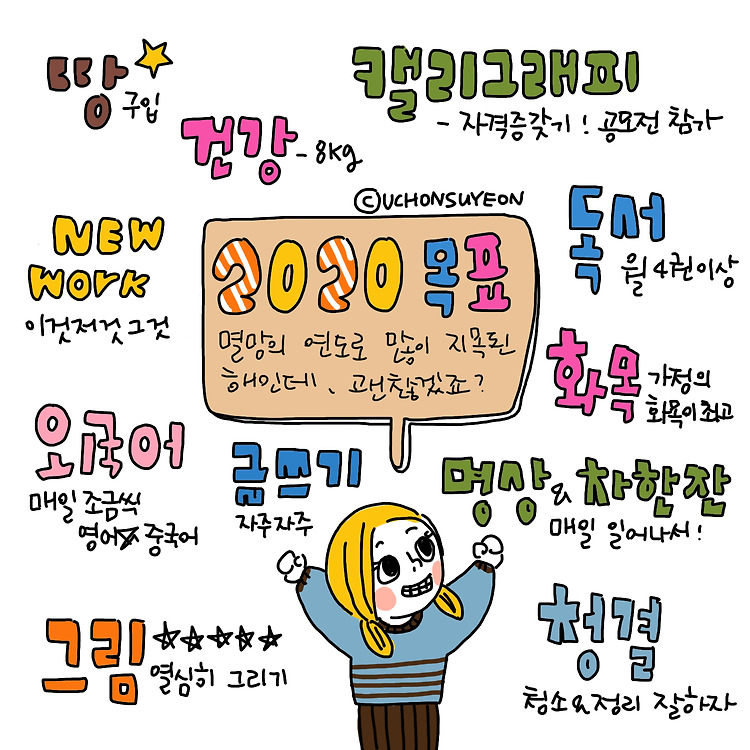 땅
구입
캘리그래피
- 자격증갖기! 공모전 참가
건강 - 8kg
©UCHONSUYEON
NEW
WORK
이것저것 그것
2020 목표
멸망의 연도로 많이 지목된
해인데, 괜찮겠죠?
독서
월 4권 이상
화목
가정의
화목이 최고
외국어
매일 조금씩
영어 중국어
글쓰기
자주자주
명상 & 차한잔
매일 일어나서!
그림 ☆☆☆☆☆
열심히 그리기
청결
청소&정리 잘하자